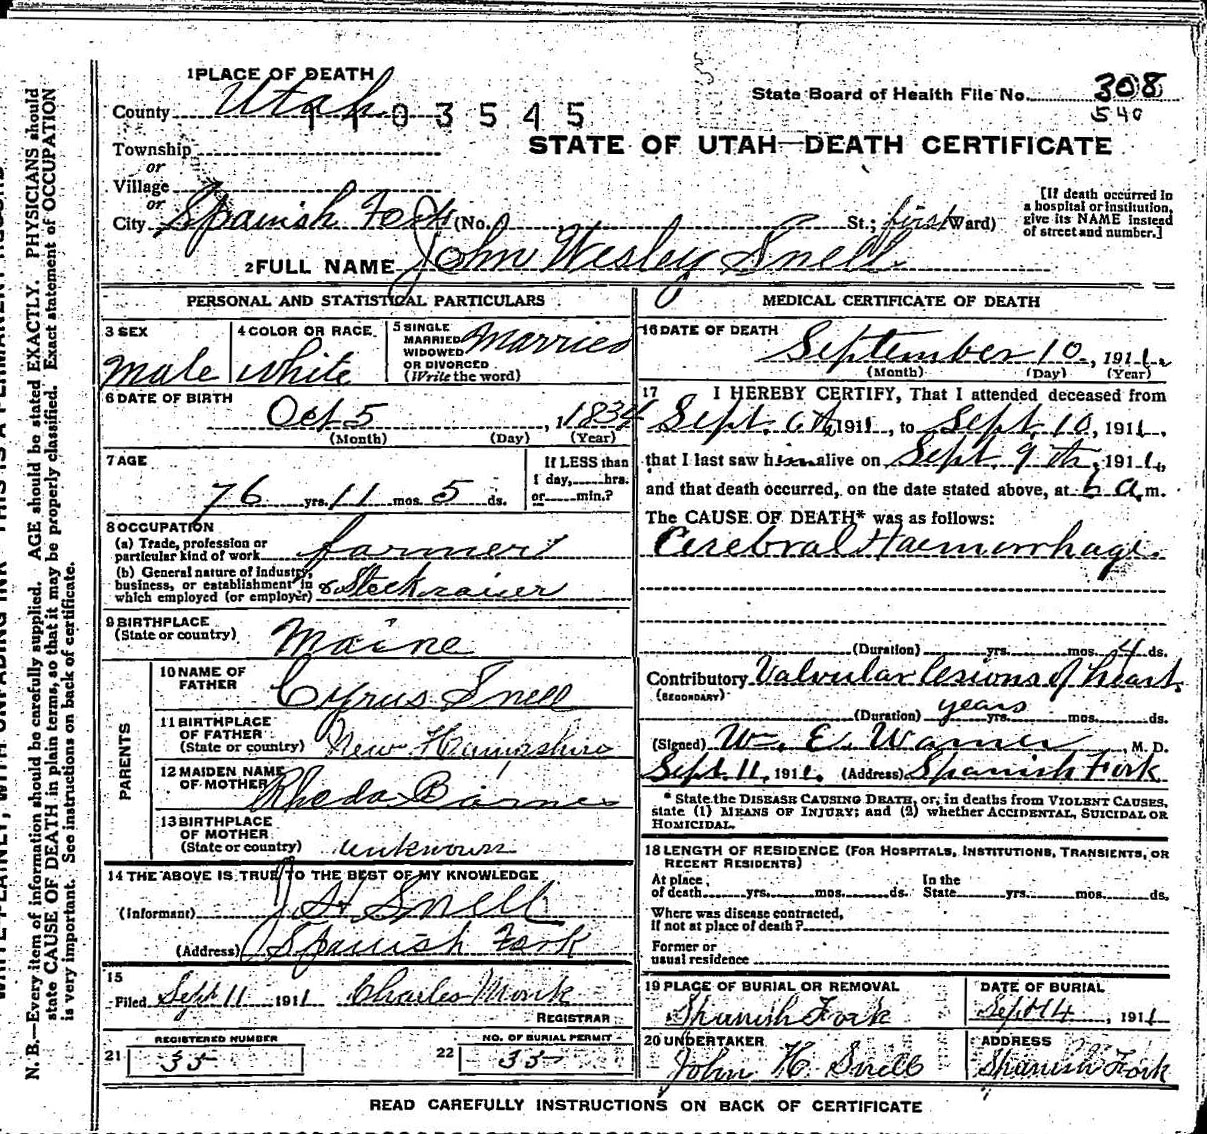 1 PLACE OF DEATH
State Board of Health File No. 308
County Utah 1103545
540
STATE OF UTAH—DEATH CERTIFICATE
Township
or
Village
or
City Spanish Fork (No. St.; first Ward)
[If death occurred in a hospital or institution, give its NAME instead of street and number.]
2 FULL NAME John Wesley Snell
PERSONAL AND STATISTICAL PARTICULARS
3 SEX
Male
4 COLOR OR RACE
white
5 SINGLE MARRIED WIDOWED OR DIVORCED (Write the word)
Married
6 DATE OF BIRTH
Oct 5, 1834
(Month) (Day) (Year)
7 AGE
76 yrs. 11 mos. 5 ds.
If LESS than
1 day, hrs.
or min.?
8 OCCUPATION
(a) Trade, profession or
particular kind of work farmer
(b) General nature of industry,
business, or establishment in
which employed (or employer) & Stockraiser
9 BIRTHPLACE
(State or country) Maine
PARENTS
10 NAME OF
FATHER Cyrus Snell
11 BIRTHPLACE
OF FATHER
(State or country) New Hampshire
12 MAIDEN NAME
OF MOTHER Rhoda Barnes
13 BIRTHPLACE
OF MOTHER
(State or country) unknown
14 THE ABOVE IS TRUE TO THE BEST OF MY KNOWLEDGE
(Informant) J H Snell
(Address) Spanish Fork
15
Filed Sept 11 1911 Charles Monk
REGISTRAR
REGISTERED NUMBER
21 35
NO. OF BURIAL PERMIT
22 35
MEDICAL CERTIFICATE OF DEATH
16 DATE OF DEATH
September 10, 1911.
(Month) (Day) (Year)
17 I HEREBY CERTIFY, That I attended deceased from
Sept. 6th 1911, to Sept. 10, 1911,
that I last saw him alive on Sept 9th, 1911,
and that death occurred, on the date stated above, at 6 a.m.
The CAUSE OF DEATH* was as follows:
Cerebral Haemorrhage.
(Duration) yrs. mos. 4 ds.
Contributory Valvular lesions of heart
(SECONDARY)
(Duration) years yrs. mos. ds.
(Signed) Wm. E. Warner, M. D.
Sept. 11, 1911. (Address) Spanish Fork
* State the DISEASE CAUSING DEATH, or, in deaths from VIOLENT CAUSES,
state (1) MEANS OF INJURY; and (2) whether ACCIDENTAL, SUICIDAL OR
HOMICIDAL.
18 LENGTH OF RESIDENCE (FOR HOSPITALS, INSTITUTIONS, TRANSIENTS, OR
RECENT RESIDENTS)
At place In the
of death yrs. mos. ds. State yrs. mos. ds.
Where was disease contracted,
If not at place of death?
Former or
usual residence
19 PLACE OF BURIAL OR REMOVAL
Spanish Fork
DATE OF BURIAL
Sept 14, 1911
20 UNDERTAKER
John H. Snell
ADDRESS
Spanish Fork
READ CAREFULLY INSTRUCTIONS ON BACK OF CERTIFICATE
N. B.—Every item of information should be carefully supplied. AGE should be stated EXACTLY. PHYSICIANS should
state CAUSE OF DEATH in plain terms, so that it may be properly classified. Exact statement of OCCUPATION
is very important. See instructions on back of certificate.